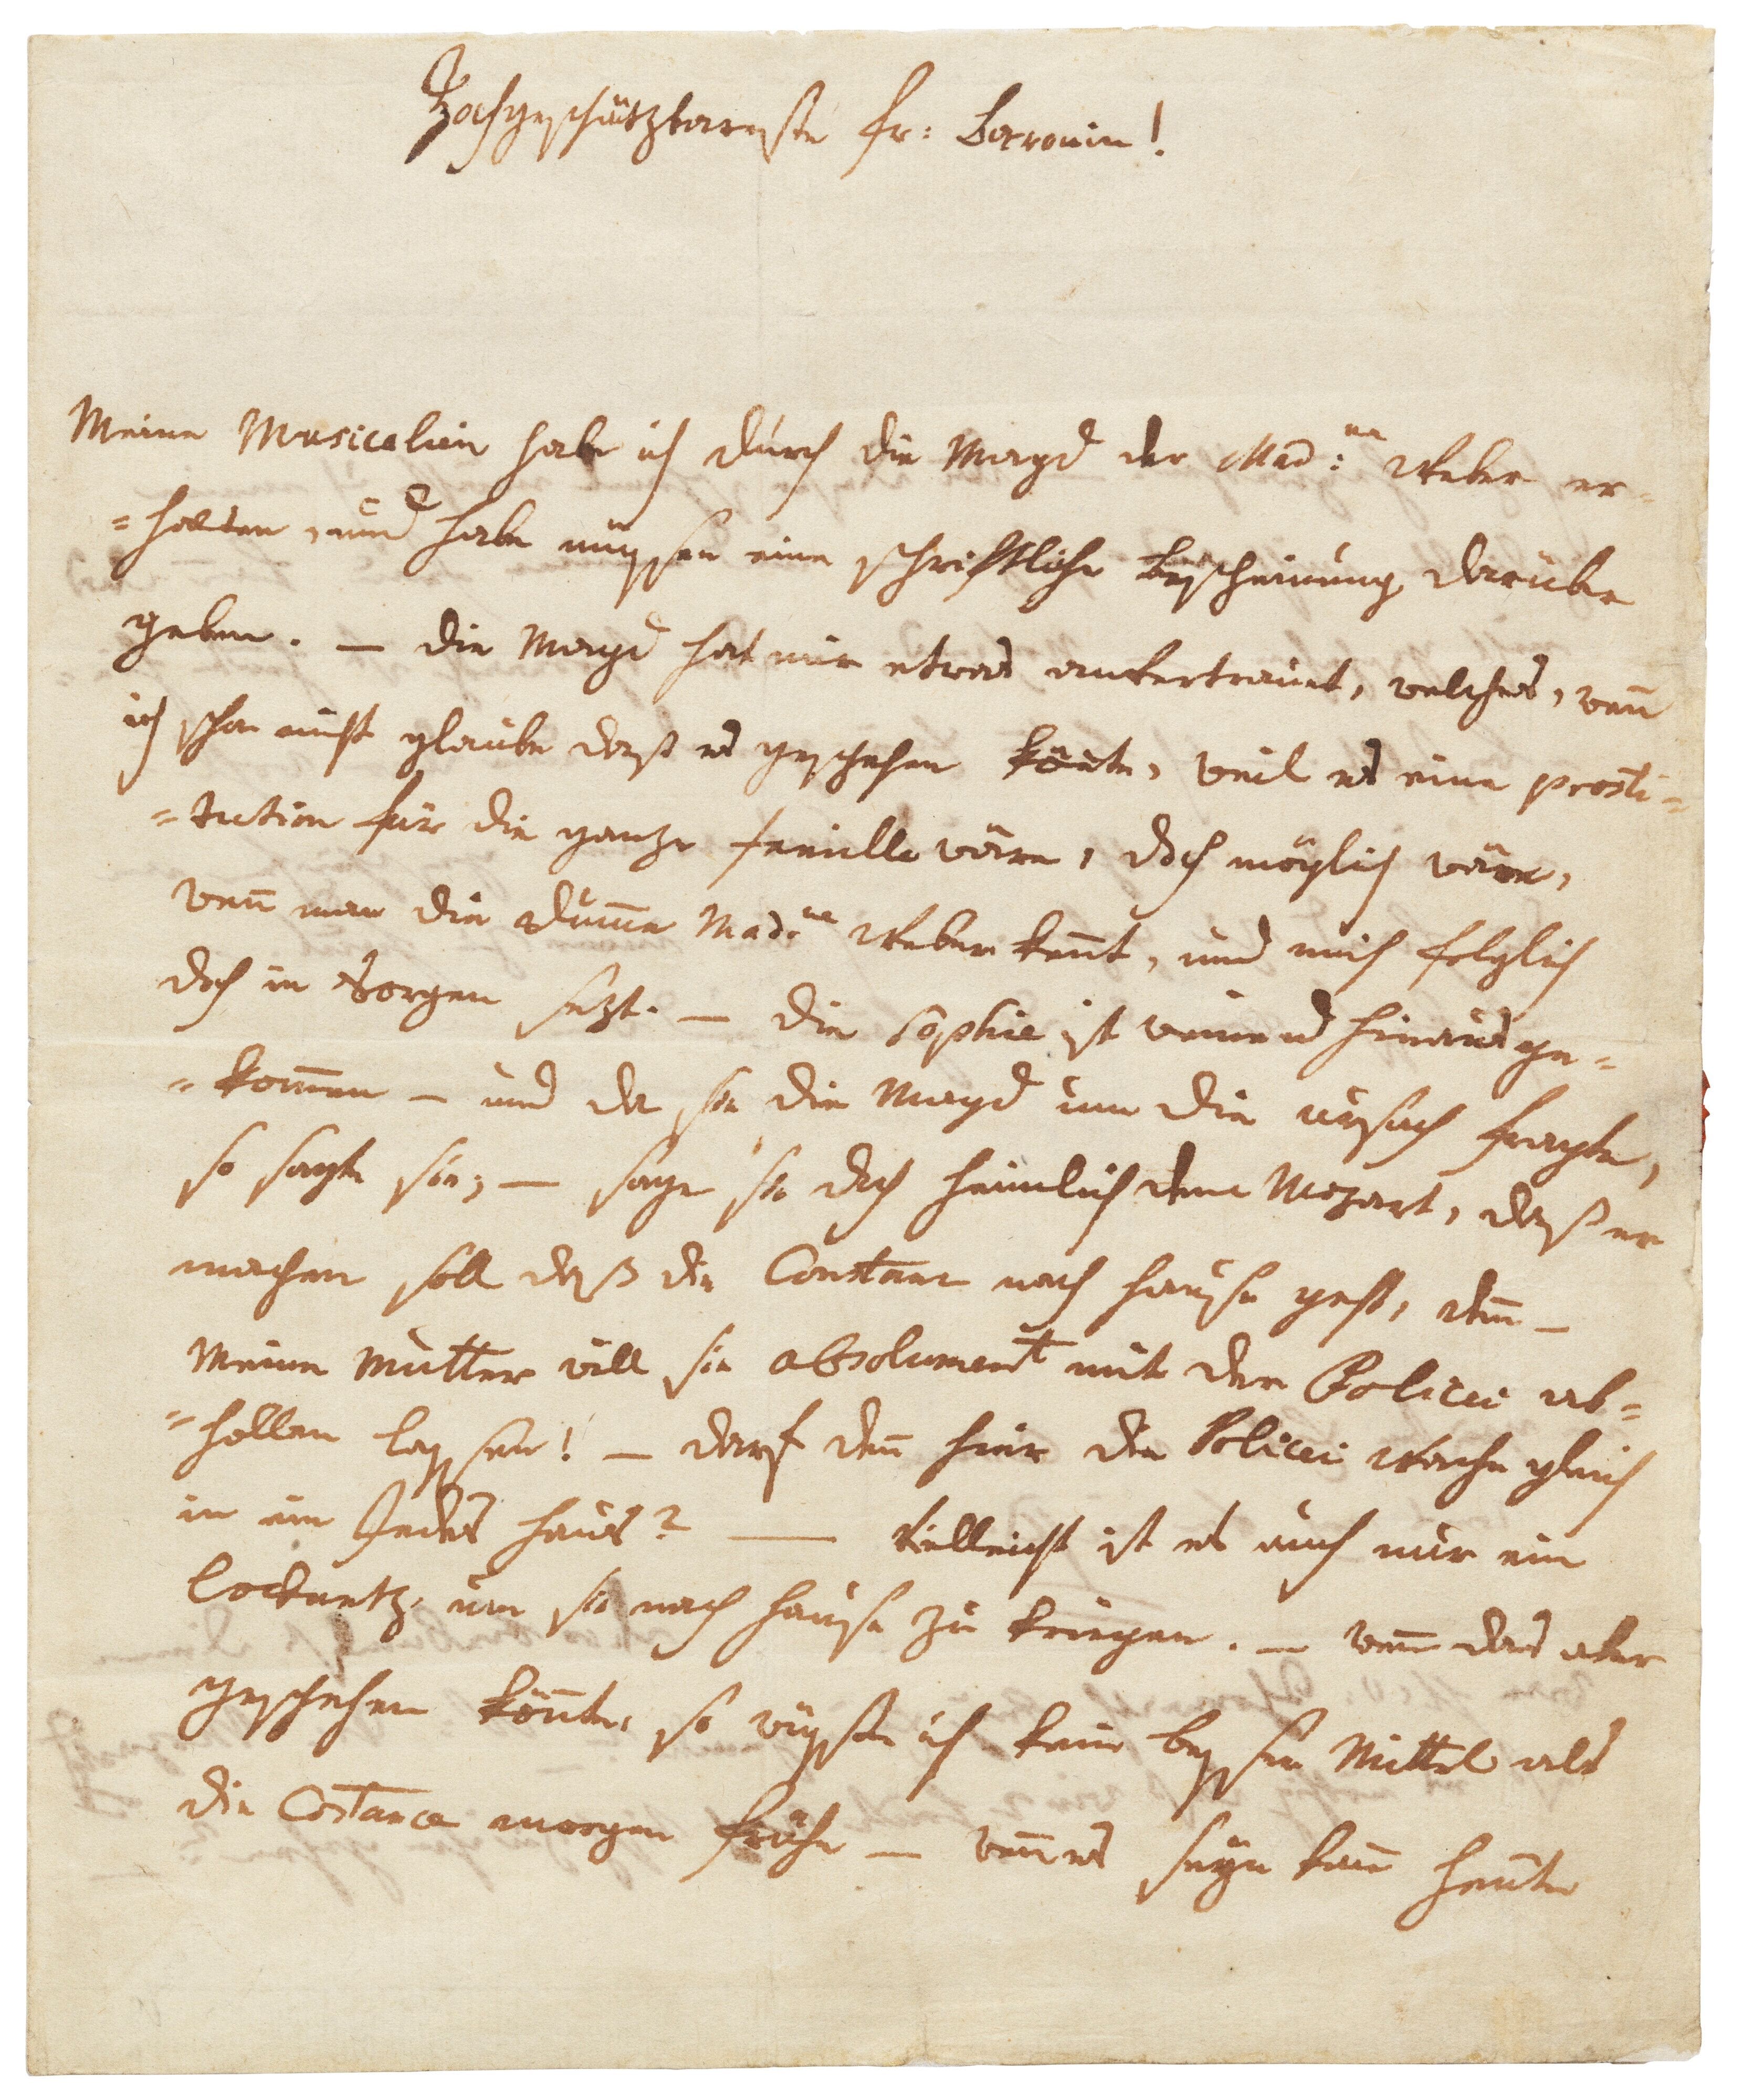 Hochgeschätzbareste fr: Barronin!
Meine Musicalien habe ich durch die Magd der Mad:me Weber er-
=halten, und habe müssen eine schriftliche bescheinung darüber
geben. — die Magd hat mir etwas anvertrauet, welches, wenn̄
ich schon nicht glaube daß es geschehen kön̄te, weil es eine prosti=
=tution für die ganze familie wäre, doch möglich wäre,
wen̄ man die dum̄e Mad:me Weber ken̄t, und mich folglich
doch in Sorgen sezt. — die Sophie ist weinend hinausge=
=kom̄en — und da sie die Magd um die ursach fragte,
so sagte sie; — sage sie doch heimlich dem Mozart, daß er
machen soll daß die Constanz nach hause geht, den̄ —
Meine Mutter will sie absolument mit der Policei ab=
=hollen lassen! — darf den̄ hier die Policei Wache gleich
in ein Jedes haus? — vielleicht ist es auch nur ein
locknetz, um sie nach hause zu kriegen. — wen̄ das aber
geschehen kön̄te, so wüsste ich kein besser Mittel als
die Costance morgen frühe — wen̄ es seyn kan̄ heute